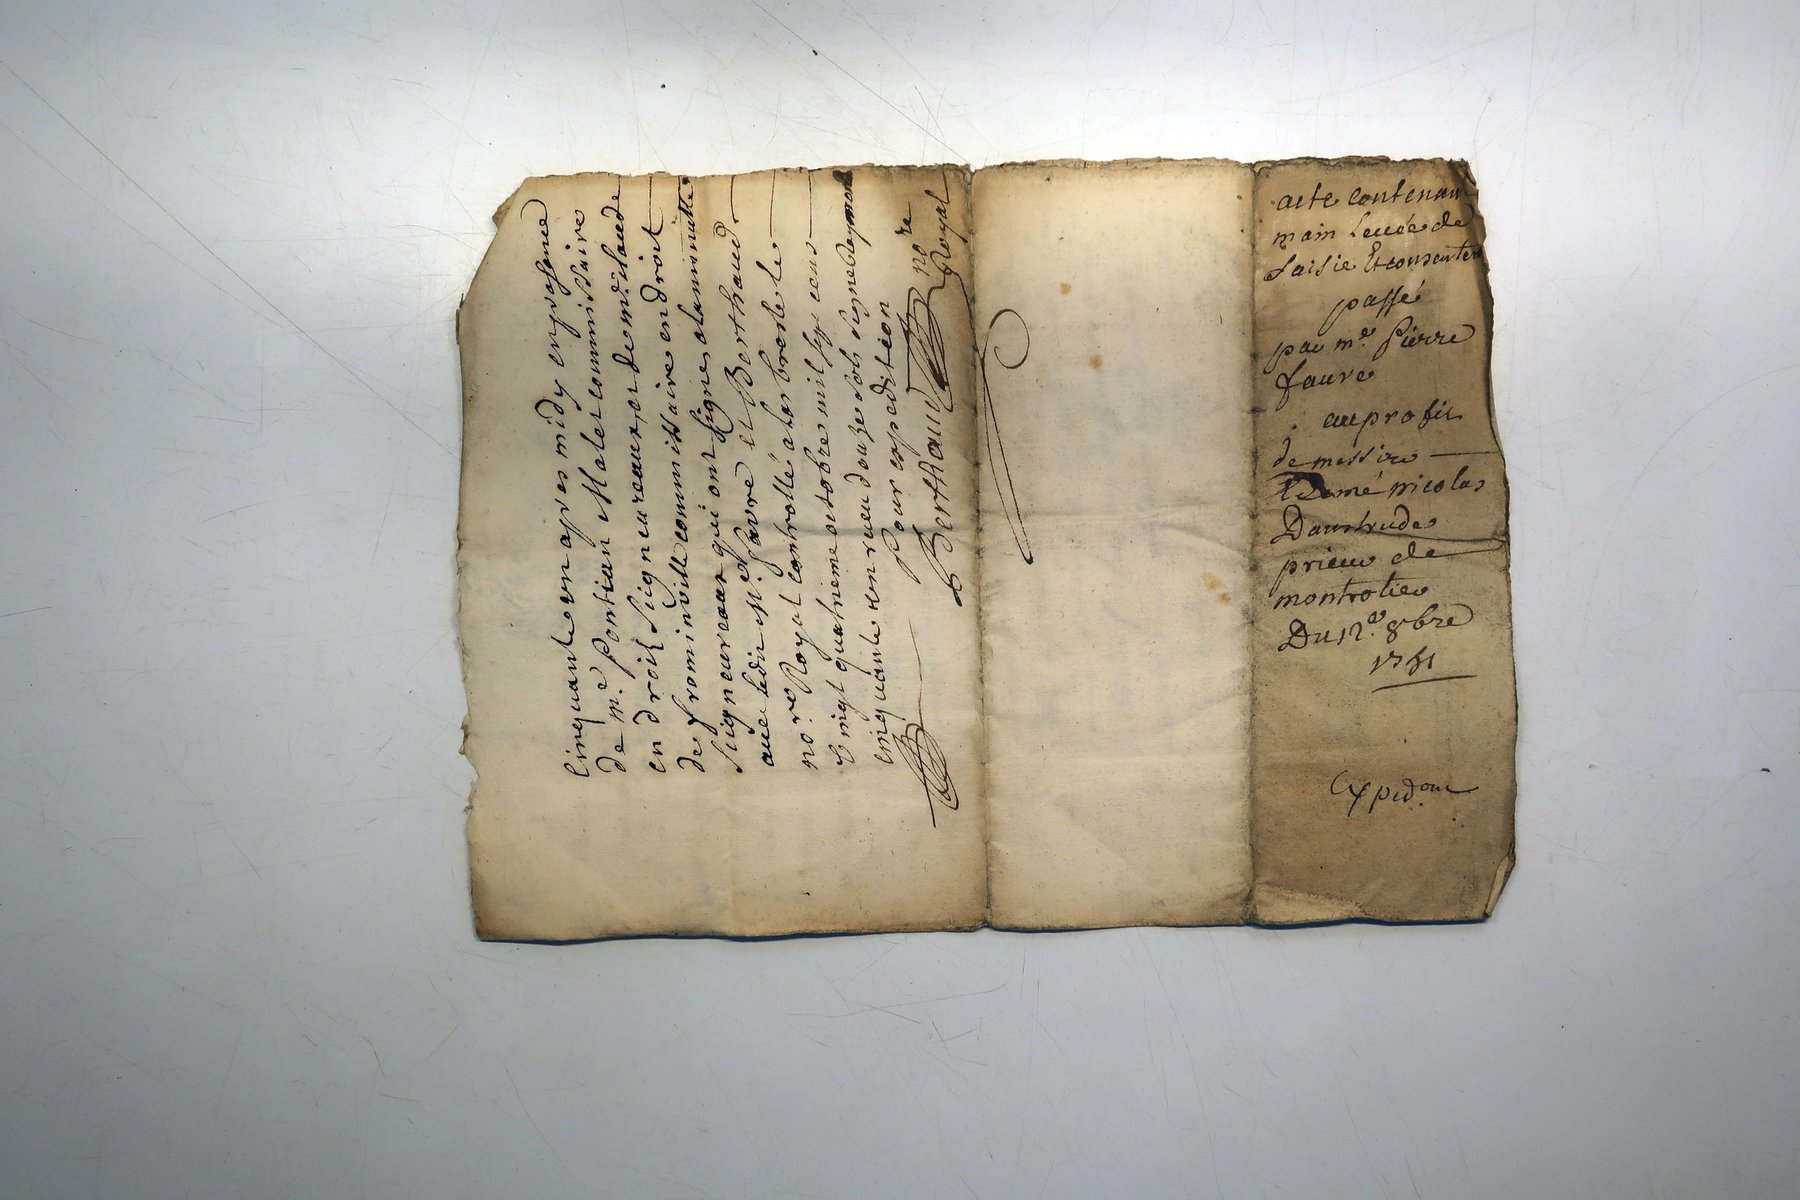 Cinquante un apres midy en presence
de me. Pontian Malet commissaire
en droit Signeureaux, et de mr. Claude
de frominville commissaire en droit
Signeureaux qui ont Signé a la minutte
avec ledit Me. Favre et Berthaud
nore. Royal controllé a la bresle le
Vingt quatrieme octobre mil sept cens
cinquante un reçu douze sols
Pour expedition
Berthaud nore
Royal
acte contenan
main Levée de
Saisie Et consentem
passé
par me. Pierre
faure
au profit
de messire
Edmé nicolas
Daustrude
prieur de
montrotier
Du 12e. 8bre
1751
Expedon